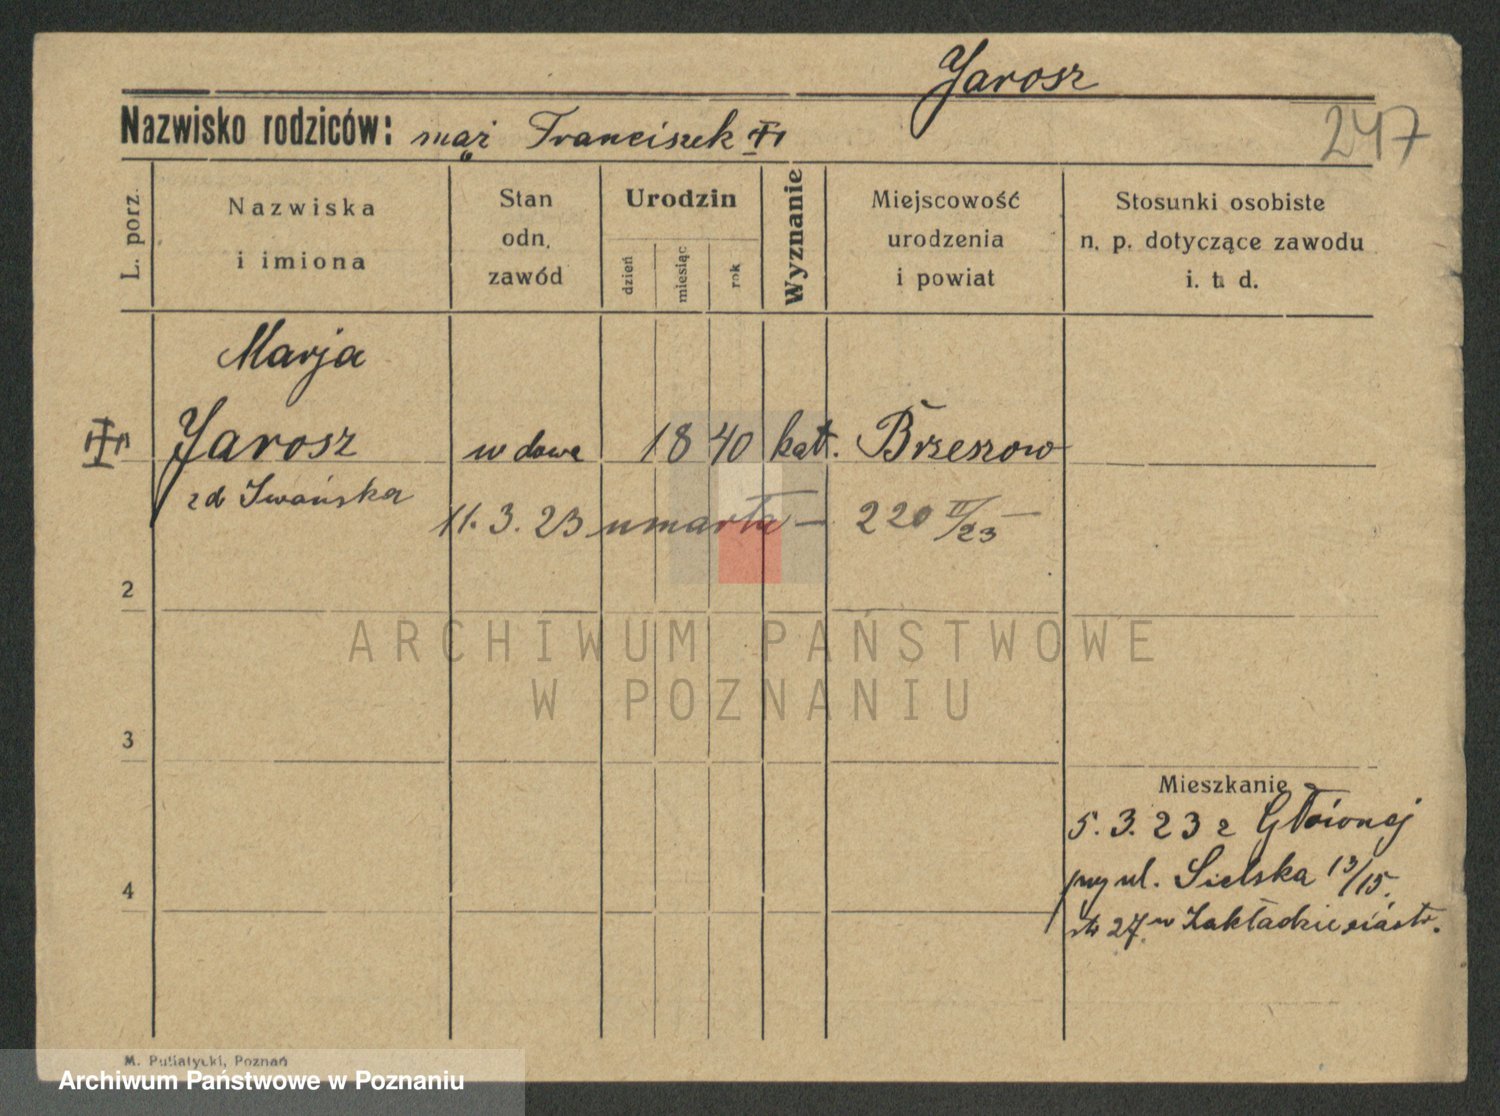 Jarosz
247
Nazwisko rodziców: mąż Franciszek
L. porz.
Nazwiska
i imiona
Stan
odn.
zawód
Urodzin
dzień
miesiąc
rok
Wyznanie
Miejscowość
urodzenia
i powiat
Stosunki osobiste
n. p. dotyczące zawodu
i. t. d.
Marja
Jarosz
zd Iwańska
wdowa
1840
kat.
Brzeszow
11. 3. 23 umarła — 220 II/23 —
2
3
4
Mieszkanie
5. 3. 23 z
przy ul. Sielska 13/15.
27 w Zakładzie siostr.
M. Putiatycki, Poznań
ARCHIWUM PAŃSTWOWE
W POZNANIU
Archiwum Państwowe w Poznaniu